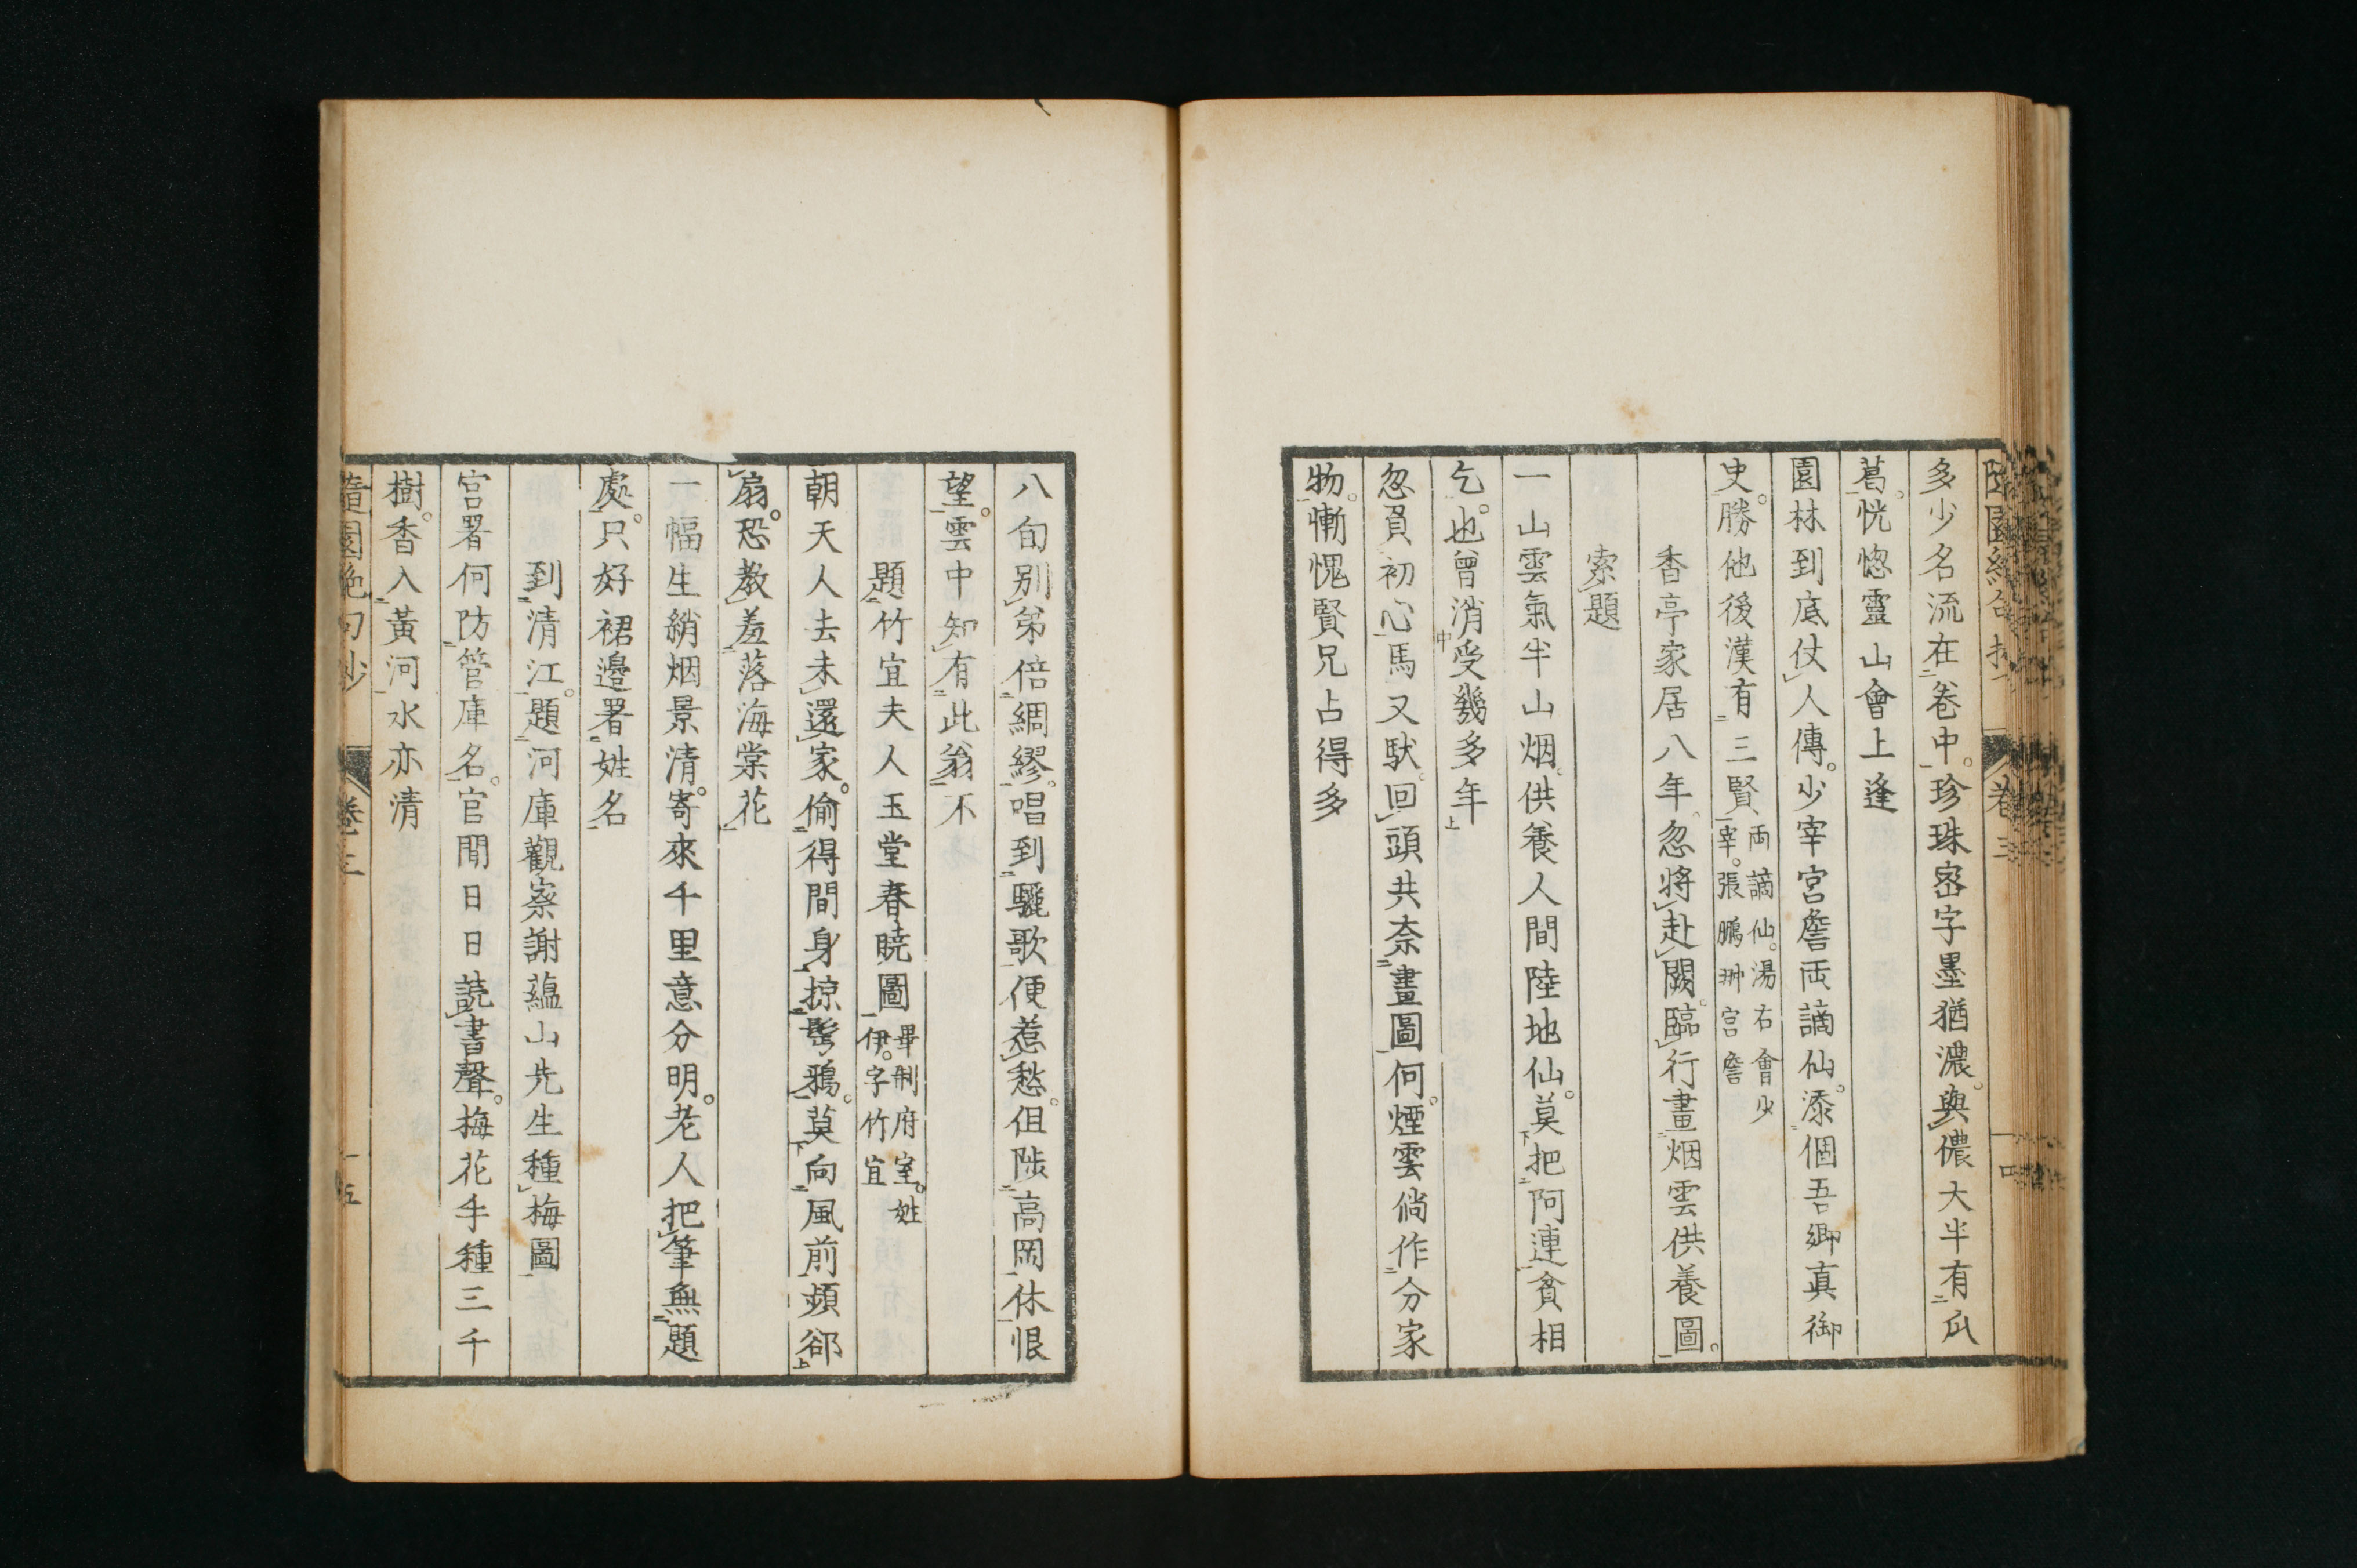 多少名流在卷中。珍珠密字墨猶濃。與儂大半有瓜
葛。恍惚靈山會上逢
園林到底仗人傳。少宰宮詹両謫仙。添個吾郷真御
史。勝他後漢有三賢
両謫仙。湯右會少
宰。張鵬翀宮詹
香亭家居八年。忽将赴闕。臨行畫烟雲供養圖。
索題
一山雲氣半山烟。供養人間陸地仙。莫把阿連貧相
乞。也曾消受幾多年
忽負初心馬又馱。回頭共奈畫圖何。煙雲倘作分家
物。慚愧賢兄占得多
卷三
八旬别弟倍綢繆。唱到驪歌便惹愁。但陟高岡休恨
望。雲中知有此翁不
題竹宜夫人玉堂春暁圖
畢制府室。姓
伊。字竹宜
朝天人去未還家。偷得間身掠髩鴉。莫向風前頻郤
扇。恐教羞落海棠花
一幅生綃烟景清。寄來千里意分明。老人把筆無題
處。只好裙邉署姓名
到清江。題河庫觀察謝蘊山先生種梅圖
宮署何防管庫名。官閒日日読書聲。梅花手種三千
樹。香入黃河水亦清
隨園絶句抄
卷三
十五